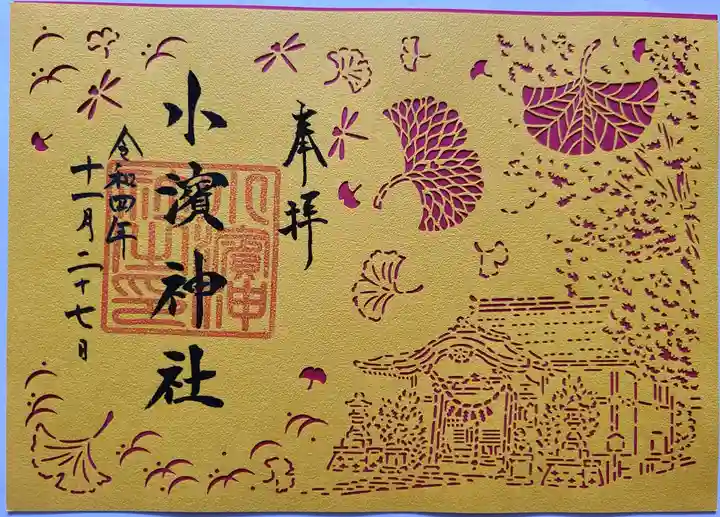 奉拝
小濱神社
令和四年
十一月二十七日
小濱神社之印